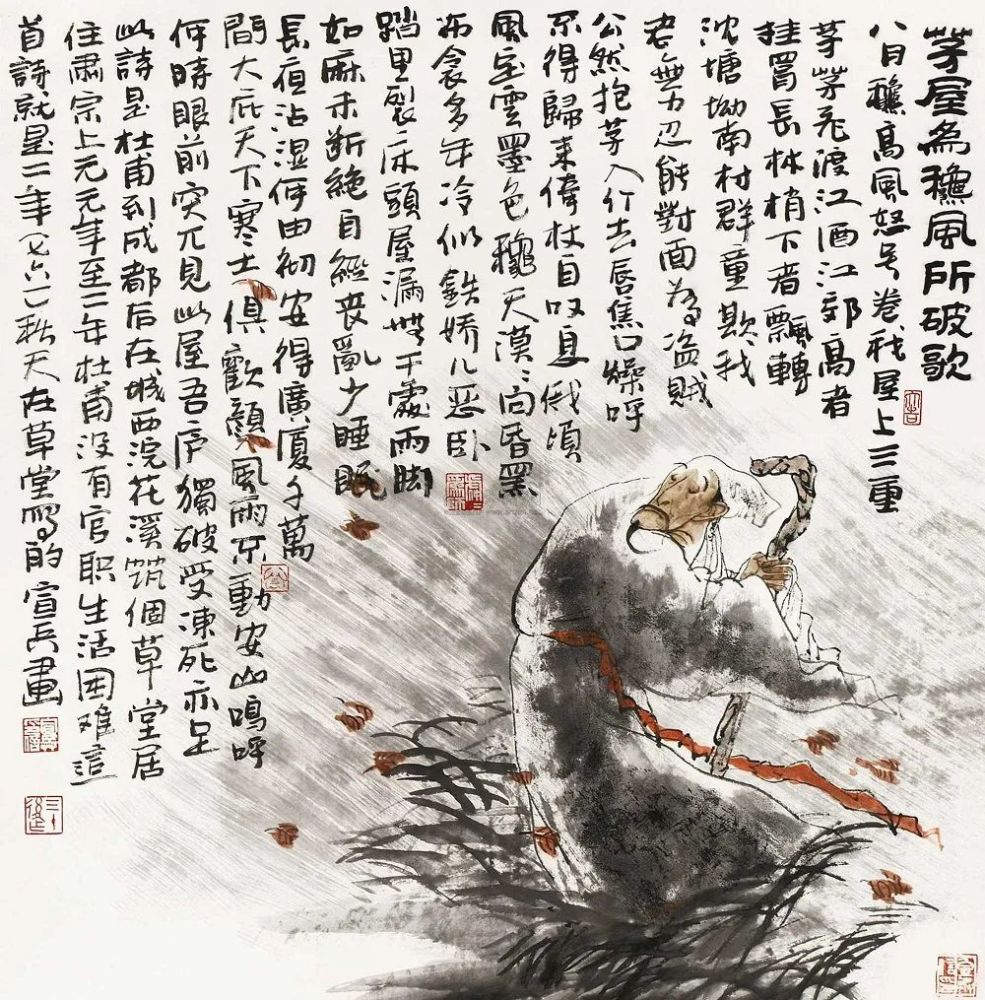 茅屋為穐風所破歌
八月穐高風怒号卷我屋上三重
茅茅飛渡江洒江郊高者
挂罥長林梢下者飄轉
沈塘坳南村群童欺我
老無力忍能對面為盗賊
公然抱茅入竹去唇焦口燥呼
不得歸来倚杖自叹息俄頃
風定雲墨色穐天漠〻向昏黑
布衾多年冷似鉄娇儿恶卧
踏里裂床頭屋漏無干處雨脚
如麻未断絶自經丧亂少睡眠
長夜沾湿何由彻安得廣廈千萬
間大庇天下寒士俱歡顔風雨不動安山鳴呼
何時眼前突兀見此屋吾庐獨破受凍死亦足
此詩是杜甫到成都后在城西浣花溪筑個草堂居
住肃宗上元元年至二年杜甫没有官职生活困难這
首詩就是二年(七六一)秋天在草堂寫的宣兵畫